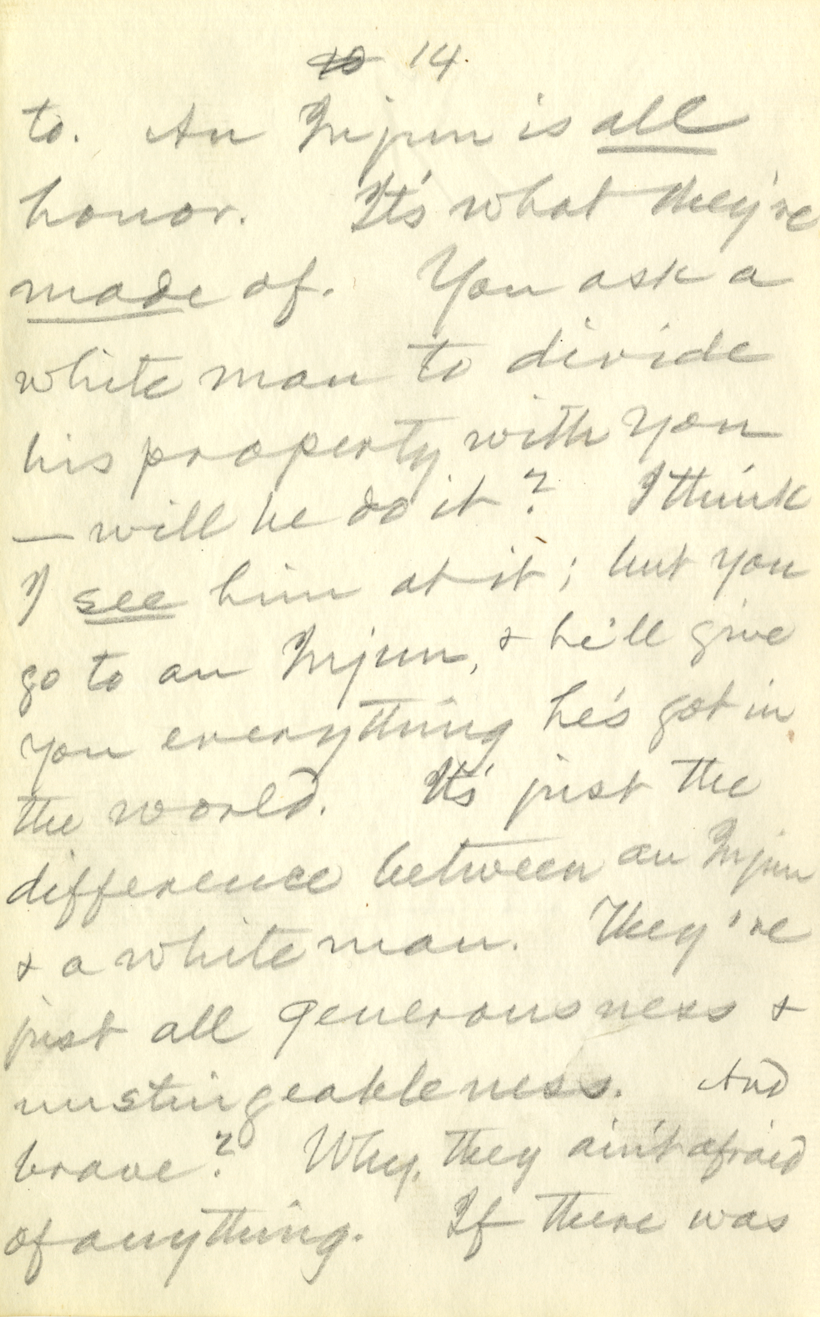 14.
to. An Injun is all
honor. It's what they're
made of. You ask a
white man to divide
his property with you
— will he do it? I think
I see him at it; but you
go to an Injun, & he'll give
you everything he's got in
the world. It's just the
difference between an Injun
& a white man. They're
just all generousness &
unstingeableness. And
brave? Why, they ain't afraid
of anything. If there was